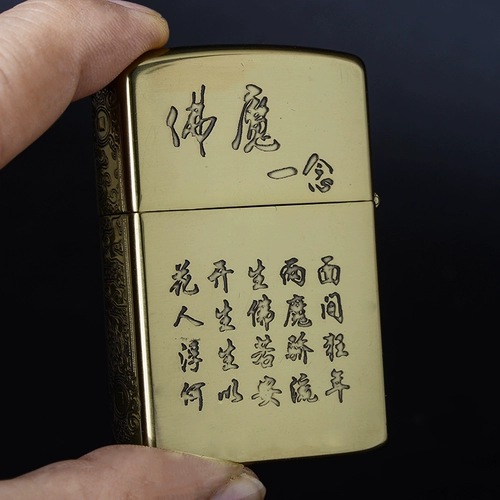 佛魔
一念
花开生两面
人生佛魔间
浮生若骄狂
何以安流年